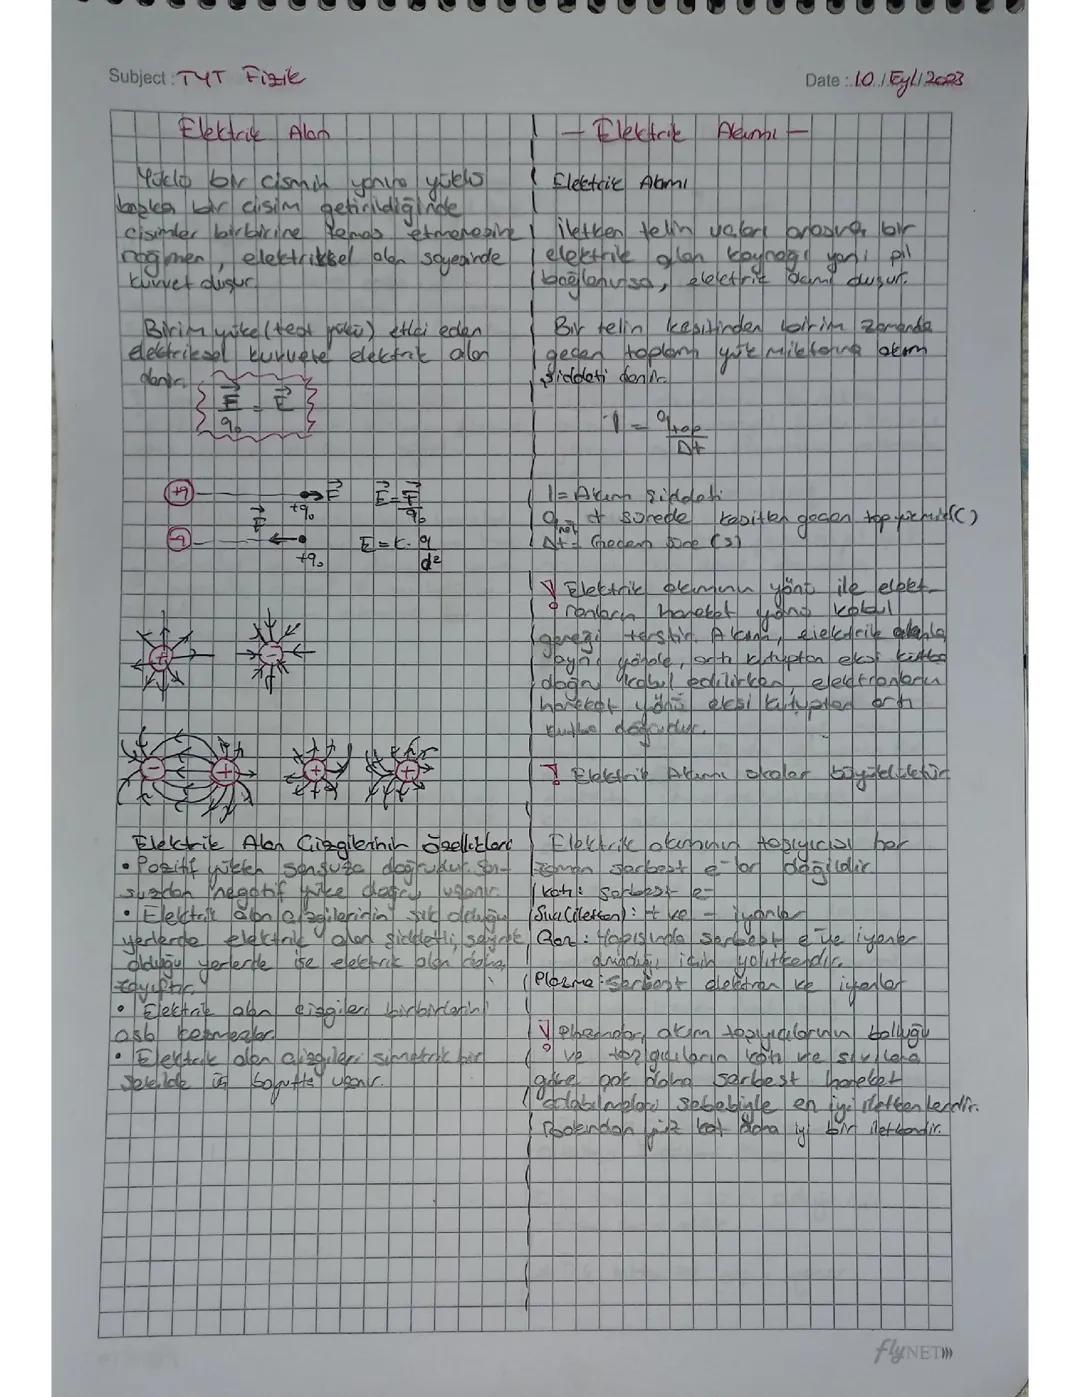 Subject: TYT Fizik
Date: 10/Eyl/2023
Elektrik Alan
Yüklü bir cismin yanına yüklü
başka bir cisim getirildiğinde
cisimler birbirine temas etmemesine
rağmen, elektriksel alan sayesinde
kuvvet oluşur.
Birim yüke (test yükü) etki eden
elektriksel kuvvete elektrik alan
denir.
F/q₀ = E
+q +q₀ F E = F/q₀
-q F +q₀ E = k. q/d²
+ -
- + + +
Elektrik Alan Çizgilerinin Özellikleri
• Pozitif yükten sonsuza doğrudur. Son-
suzdan negatif yüke doğru uzanır.
• Elektrik alan çizgilerinin sık olduğu
yerlerde elektrik alan şiddetli, seyrek
olduğu yerlerde ise elektrik alan daha
zayıftır.
• Elektrik alan çizgileri birbirlerini
asla kesmezler.
• Elektrik alan çizgileri simetrik bir
şekilde üç boyutta uzanır.
- Elektrik Akımı -
Elektrik Akımı
İletken telin uçları arasına bir
elektrik alan kaynağı yani pil
bağlanırsa, elektrik akımı oluşur.
Bir telin kesitinden birim zamanda
geçen toplam yük miktarına akım
şiddeti denir.
I = qtop/Δt
I = Akım şiddeti
t sürede kesitten geçen top yük mik(C)
Δt = Geçen süre (s)
! Elektrik akımının yönü ile elekt-
ronların hareket yönü kabul
gereği terstir. Akım, elektrik alanla
aynı yönde, artı kutuptan eksi kutba
doğru kabul edilirken, elektronların
hareket yönü eksi kutuptan artı
kutba doğrudur.
! Elektrik Akımı skaler büyüklüktür
Elektrik akımının taşıyıcısı her
zaman serbest e⁻lar değildir
Katı: serbest e⁻
Sıvı (iletken): + ve - iyonlar
Gaz: Yapısında serbest e⁻ ve iyonlar
olmadığı için yalıtkandır.
Plazma: serbest elektron ve iyonlar
! Plazmalar, akım taşıyıcılarının bolluğu
ve taşıyıcıların katı ve sıvılara
göre çok daha serbest hareket
edebilmeleri sebebiyle en iyi iletkenlerdir.
Bakırdan yüz kat daha iyi bir iletkendir.
flyNET